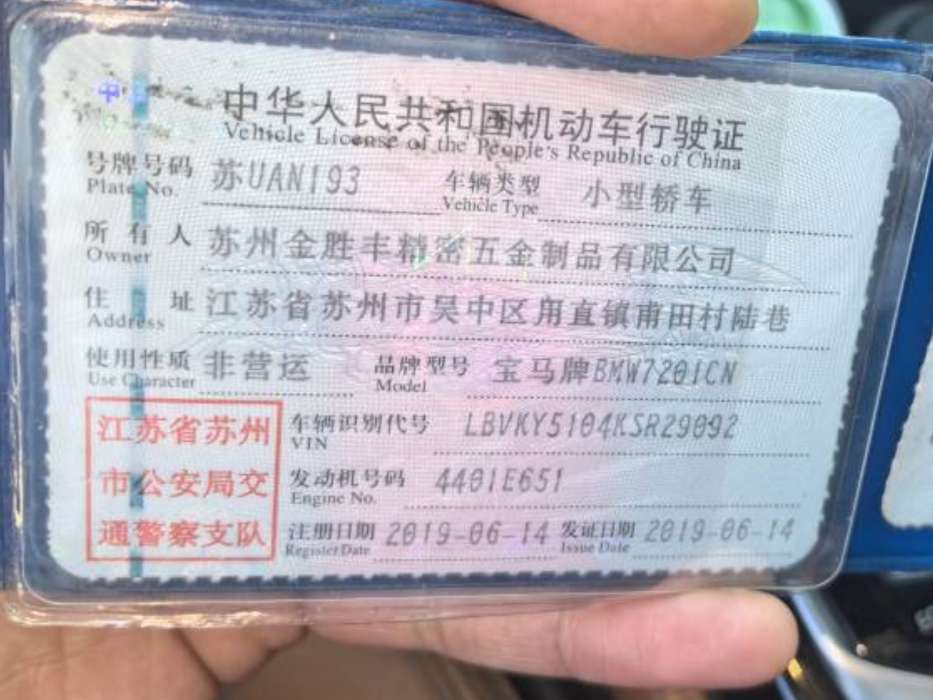 中华人民共和国机动车行驶证
Vehicle License of the People's Republic of China
号牌号码 苏UAN193 车辆类型 小型轿车
Plate No. Vehicle Type
所有人 苏州金胜丰精密五金制品有限公司
Owner
住址 江苏省苏州市吴中区甪直镇甫田村陆巷
Address
使用性质 非营运 品牌型号 宝马牌BMW7201CN
Use Character Model
江苏省苏州 车辆识别代号 LBVKY5104KSR29092
VIN
市公安局交 发动机号码 4401E651
Engine No.
通警察支队 注册日期 2019-06-14 发证日期 2019-06-14
Register Date Issue Date